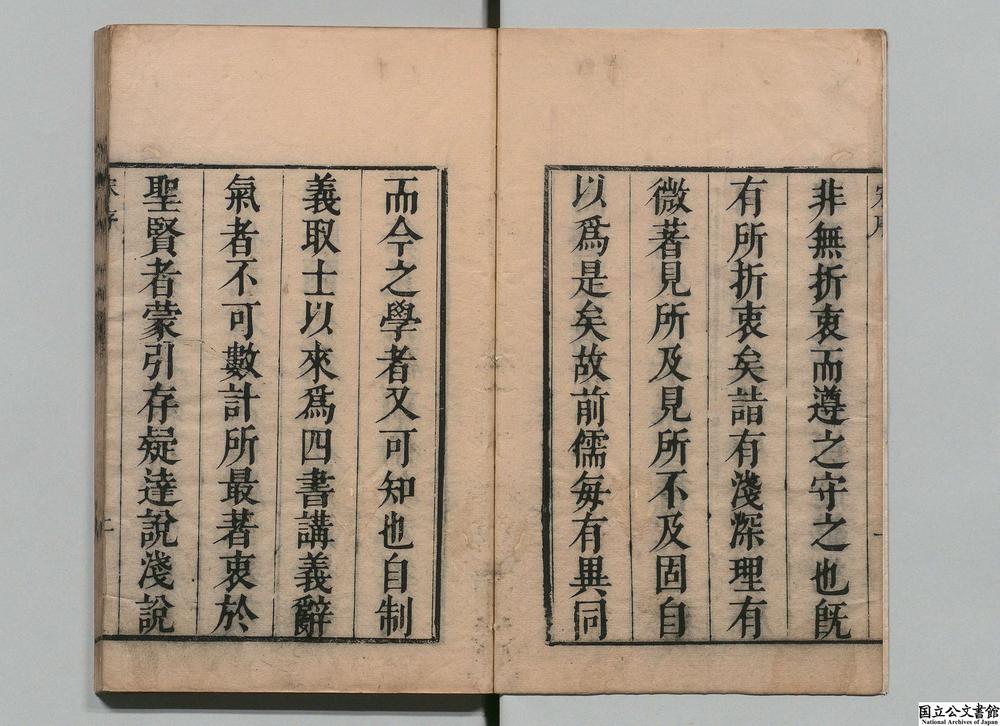 非無折衷而遵之守之也既
有所折衷矣詣有淺深理有
微著見所及見所不及固自
以爲是矣故前儒每有異同
而今之學者又可知也自制
義取士以來爲四書講義辭
氣者不可數計所最著衷於
聖賢者蒙引存疑達說淺說
国立公文書館
National Archives of Japan